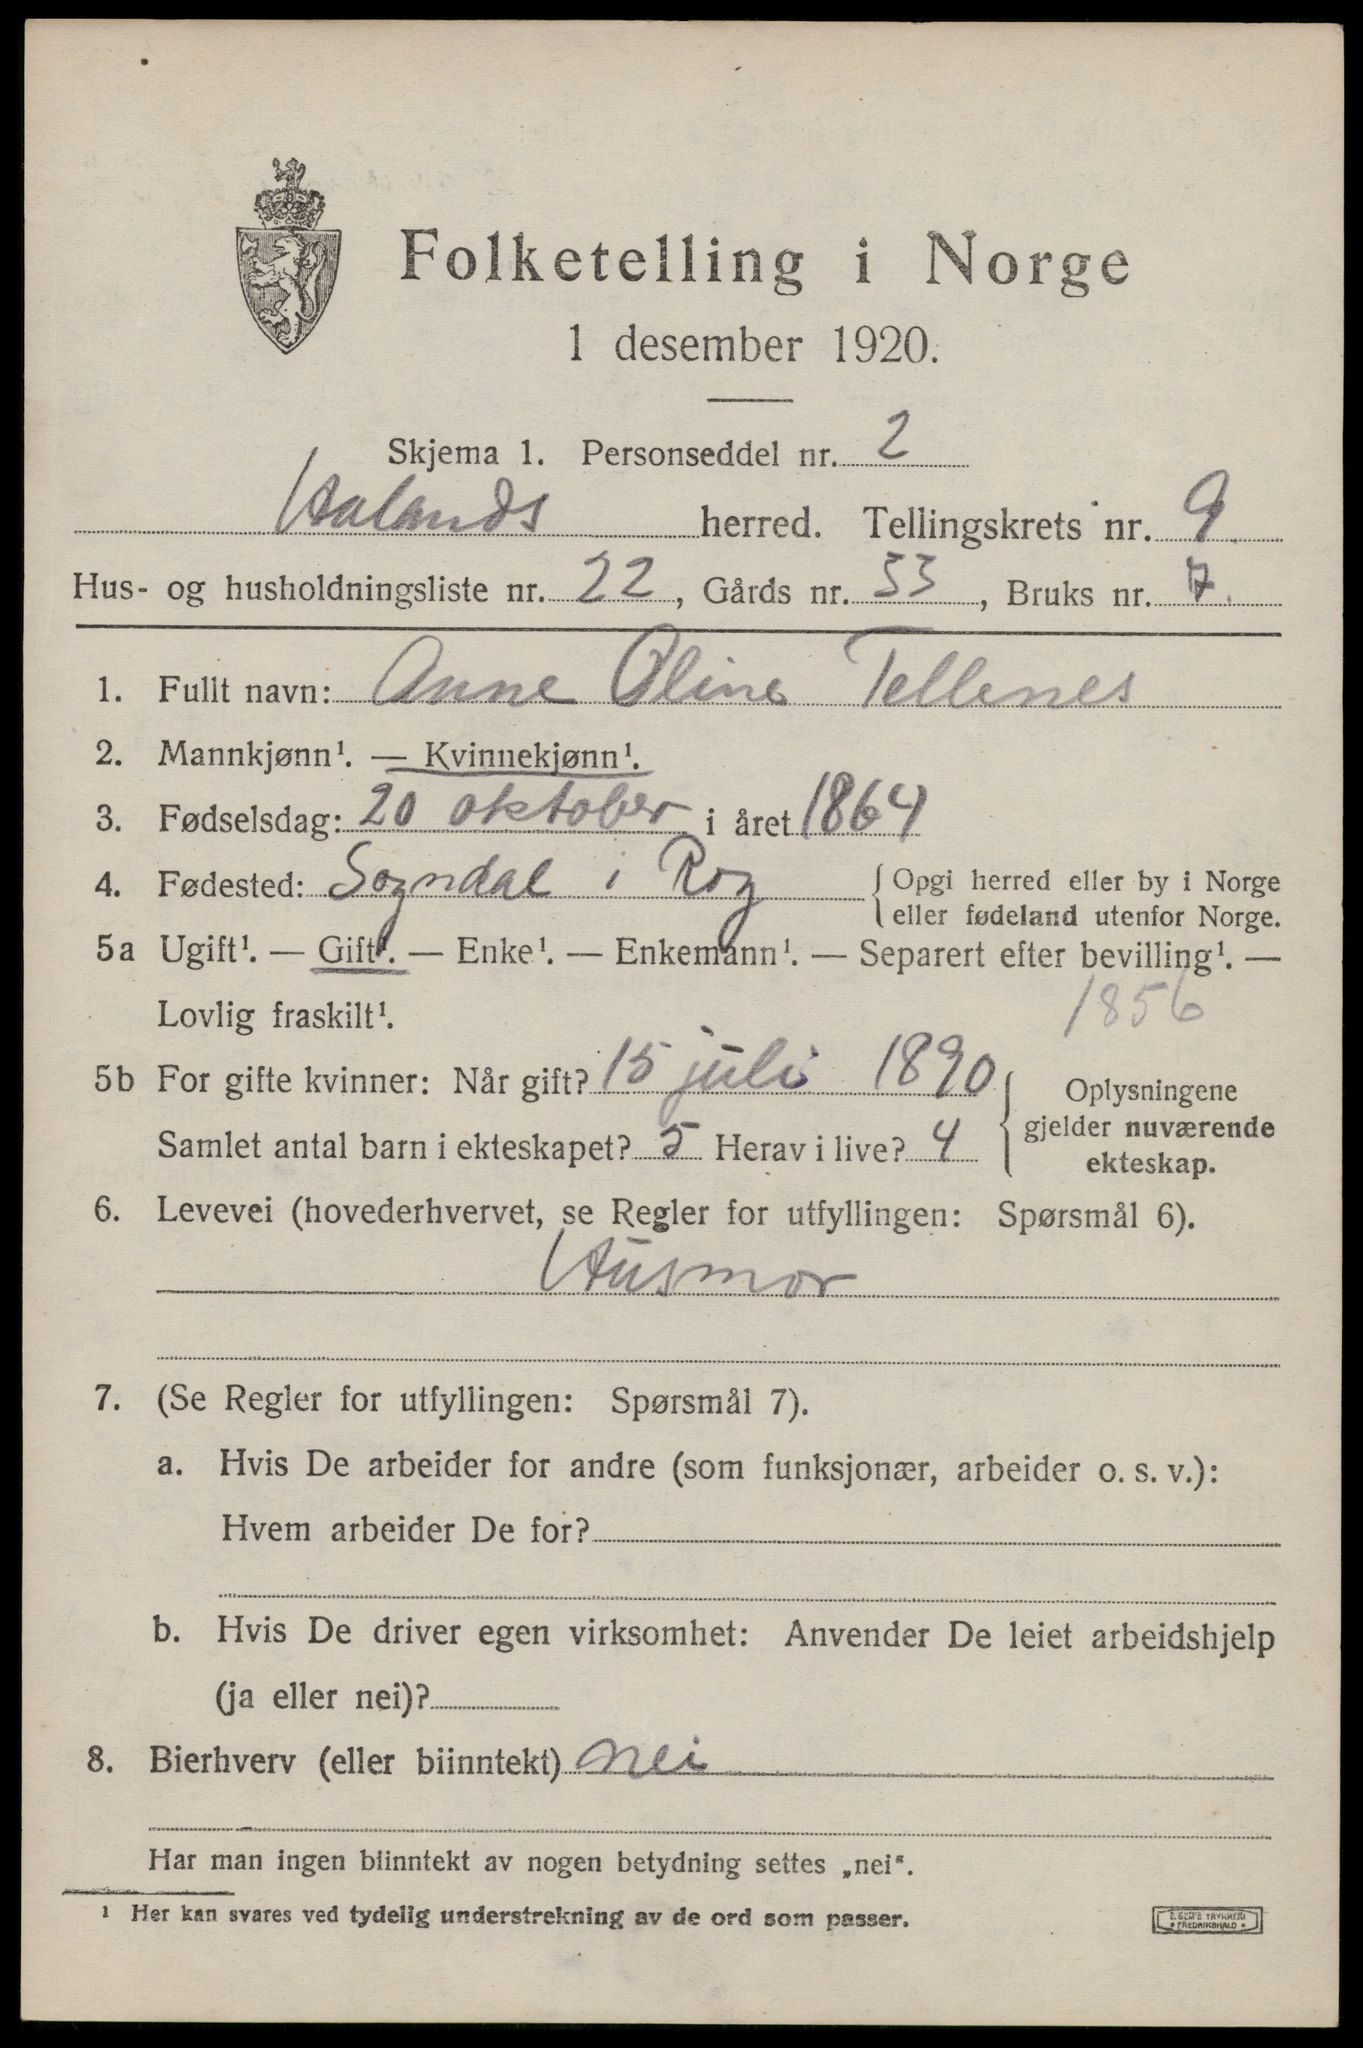 Folketelling i Norge
1 desember 1920.
Skjema 1. Personseddel nr. 2
Halands herred. Tellingskrets nr. 9.
Hus- og husholdningsliste nr. 22, Gårds nr. 33, Bruks nr. 7.
1. Fullt navn: Anne Oline Tellenes
2. Mannkjønn¹. — Kvinnekjønn¹.
3. Fødselsdag: 20 oktober i året 1864
4. Fødested: Sogndal i Rog { Opgi herred eller by i Norge
eller fødeland utenfor Norge.
5a Ugift¹. — Gift¹. — Enke¹. — Enkemann¹. — Separert efter bevilling¹. —
Lovlig fraskilt¹. 1856
5b For gifte kvinner: Når gift? 15 juli 1890
Samlet antal barn i ekteskapet? 5 Herav i live? 4
{ Oplysningene
gjelder nuværende
ekteskap.
6. Levevei (hovederhvervet, se Regler for utfyllingen: Spørsmål 6).
Husmor
7. (Se Regler for utfyllingen: Spørsmål 7).
a. Hvis De arbeider for andre (som funksjonær, arbeider o. s. v.):
Hvem arbeider De for?
b. Hvis De driver egen virksomhet: Anvender De leiet arbeidshjelp
(ja eller nei)?
8. Bierhverv (eller biinntekt) nei
Har man ingen biinntekt av nogen betydning settes „nei".
¹ Her kan svares ved tydelig understrekning av de ord som passer.
E. SEM'S TRYKKERI
• FREDRIKSHALD •